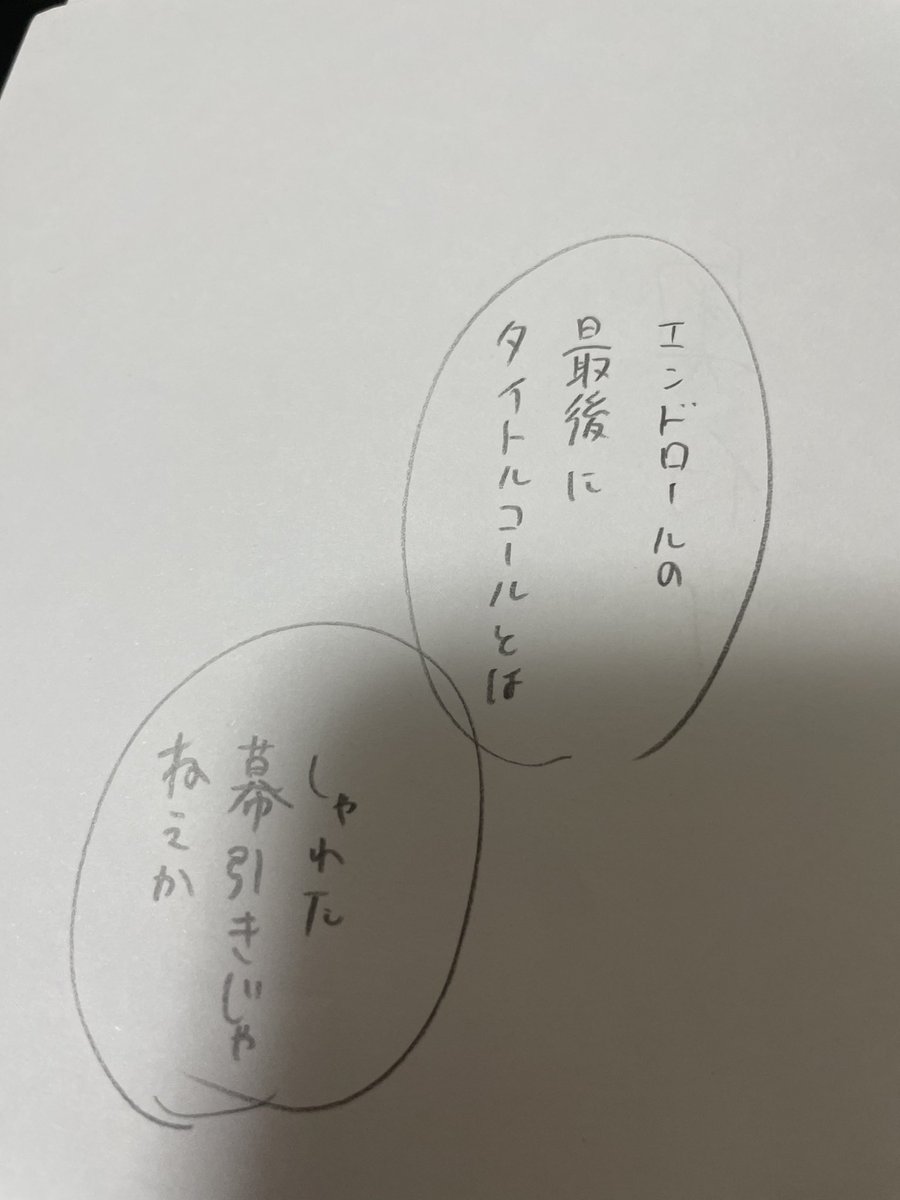 エンドロールの
最後に
タイトルコールとは
しゃれた
幕引きじゃ
ねえか